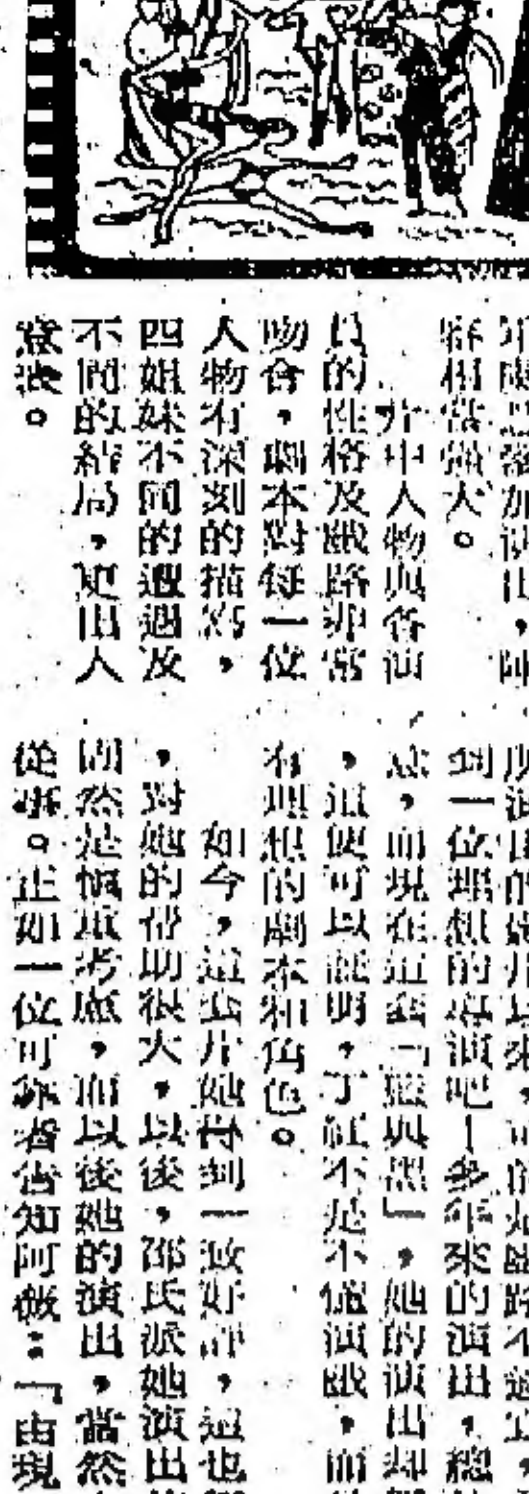 加演出，陣
相當強大。
片中人物與各演
員的性格及戲路非常
吻合，劇本對每一位
人物有深刻的描寫，
四姐妹不同的遭遇及
不同的結局，更出人
意表。
到一位理想的導演吧！多年來的演出，總
，而現在這套「藍與黑」，她的演出却
，這便可以證明，丁紅不是不懂演戲，而
有理想的劇本和角色。
如今，這套片她得到一致好評，這也
，對她的帮助很大，以後，邵氏派她演出
固然是慎重考慮，而以後她的演出，當然
從事。正如一位可靠者告知阿薇：「由現